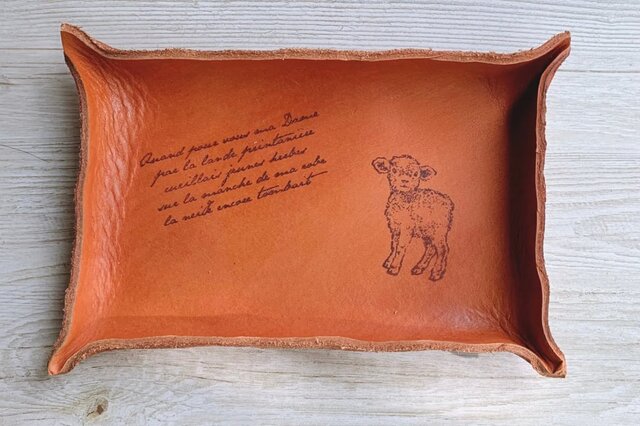 Quand pour vous ma Dame
par la lande printanière
cueillais jeunes herbes
sur la manche de ma robe
la neige encore tombait